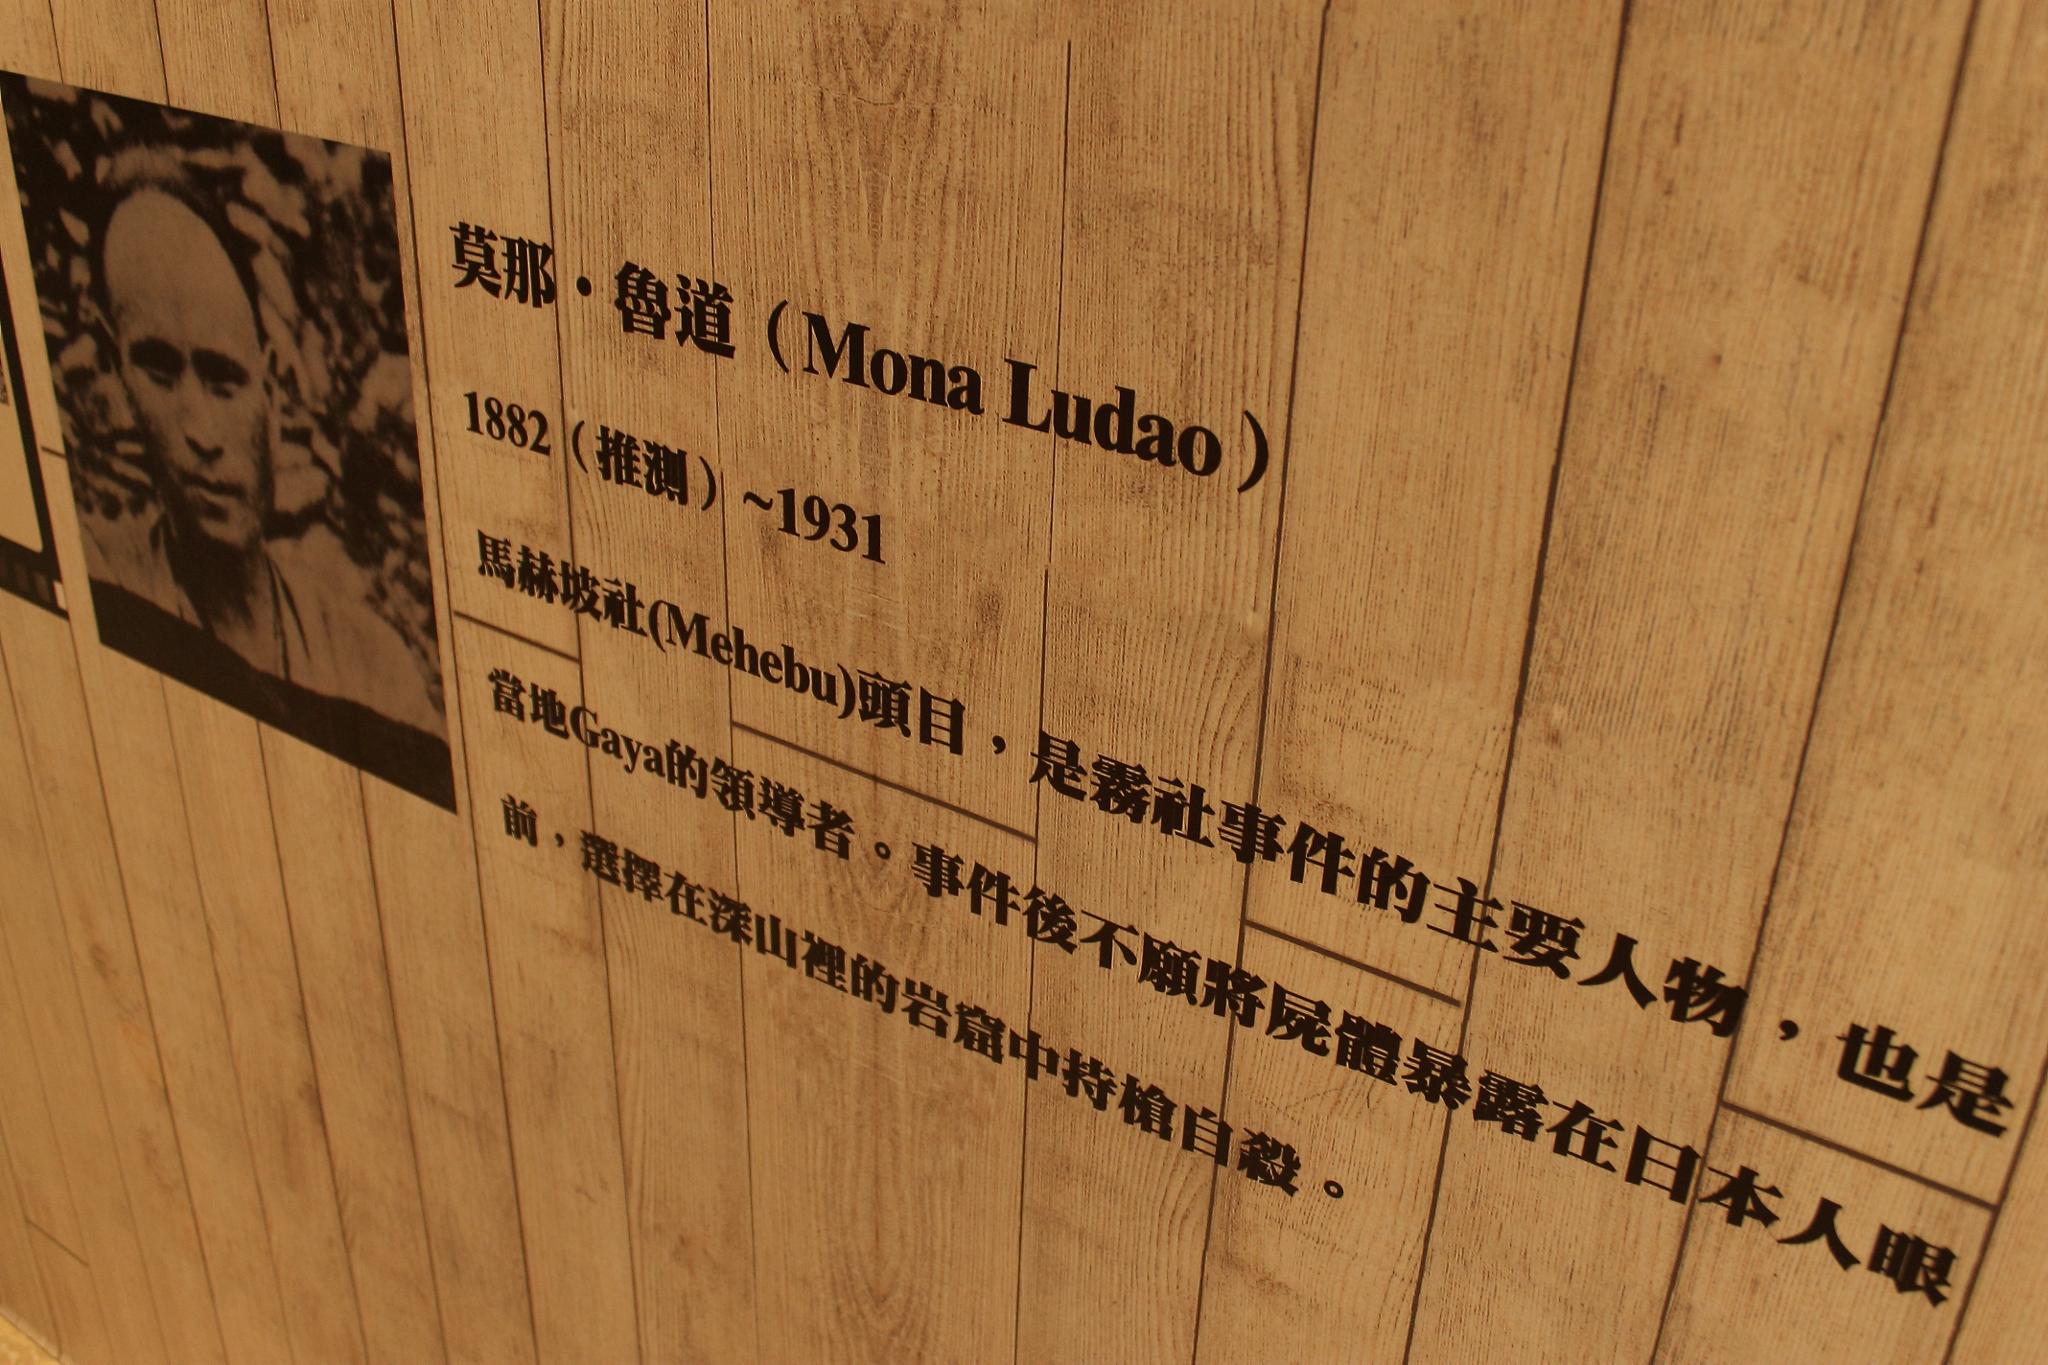 莫那・魯道（Mona Ludao）
1882（推測）~1931
馬赫坡社(Mehebu)頭目，是霧社事件的主要人物，也是
當地Gaya的領導者。事件後不願將屍體暴露在日本人眼
前，選擇在深山裡的岩窟中持槍自殺。